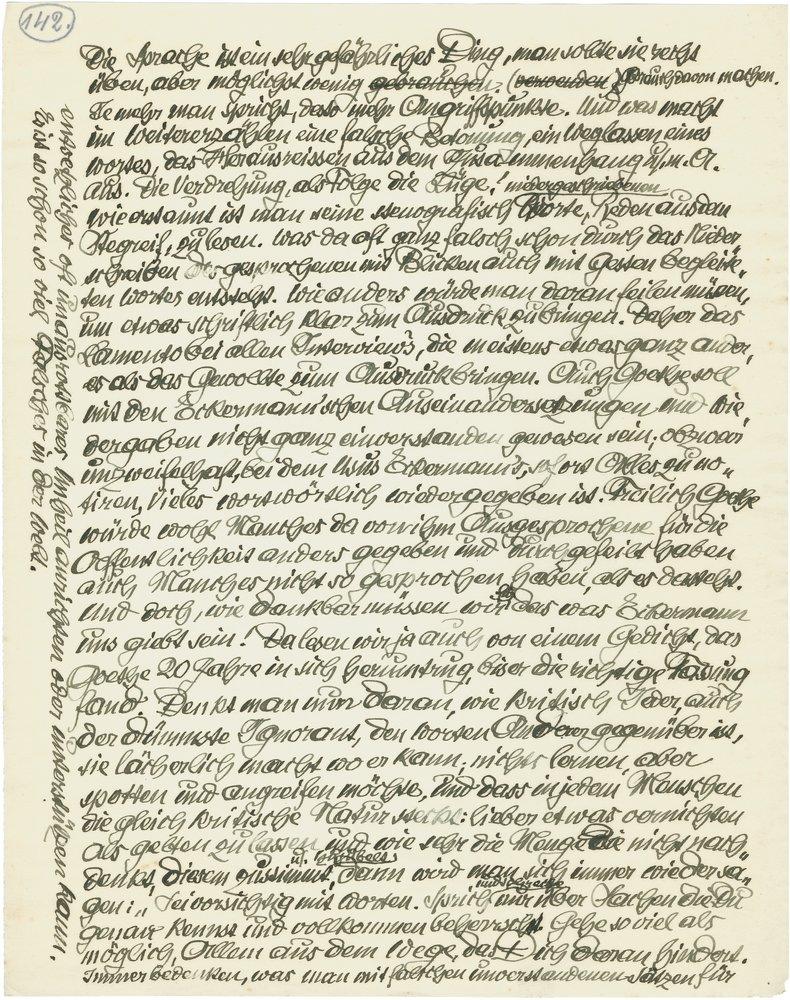 142.
Die Sprache ist ein sehr gefährliches Ding, man sollte sie recht
üben, aber möglichst wenig gebrauchen. (verwenden) Gebrauch davon machen.
Je mehr man spricht, desto mehr Angriffspunkte. Und was macht
im Weitererzählen eine falsche Betonung, ein Weglassen eines
Wortes, das Herausreissen aus dem Zusammenhang u. m. A.
aus. Die Verdrehung, als Folge die Lüge! niedergeschriebenen
Wie erstaunt ist man seine stenografisch Worte, Reden aus dem
Stegreif, zu lesen. Was da oft ganz falsch schon durch das Nieder
schreiben des gesprochenen mit Blicken auch mit Gesten begleite-
ten Wortes entsteht. Wie anders würde man daran feilen müssen,
um etwas schriftlich klar zum Ausdruck zu bringen. Daher das
Lamento bei allen Interview's, die meistens etwas ganz ander,
es als das Gewollte zum Ausdruck bringen. Auch Goethe soll
mit den Eckermann'schen Auseinandersetzungen und Wie,
dergaben nicht ganz einverstanden gewesen sein; obzwar
unzweifelhaft, bei dem Usus Eckermann's, sofort Alles zu no-
tiren, Vieles wortwörtlich wiedergegeben ist. Freilich Goethe
würde wohl Manches da von ihm Ausgesprochene für die
Oeffentlichkeit anders gegeben und durchgefeilt haben
auch Manches nicht so gesprochen haben, als es dasteht.
Und doch, wie dankbar müssen wir das was Eckermann
uns giebt sein! Da lesen wir ja auch von einem Gedicht, das
Goethe 20 Jahre in sich herumtrug, bis er die richtige Fassung
fand. Denkt man nun daran, wie kritisch Jeder, auch
der dümmste Ignorant, den Worten Anderer gegenüber ist,
sie lächerlich macht wo er kann; nichts lernen, aber
spotten und angreifen möchte, und dass in jedem Menschen
die gleich kritische Natur steckt: lieber etwas vernichten
als gelten zu lassen und wie sehr die Menge die nicht nach-
denkt, diesem zustimmt, u. zujubelt, dann wird man sich immer wieder sa-
gen: „Sei vorsichtig mit Worten. Sprich nur über Sachen die Du
genau kennst und vollkommen beherrscht. Gehe so viel als
möglich, Allem aus dem Wege, das Dich daran hindert.
Immer bedenken, was man mit falschen unverstandenen Sätzen für
entsetzliches oft unausrottbares Unheil anrichten oder unterstützen kann.
Es ist so schon so viel Falsches in der Welt.